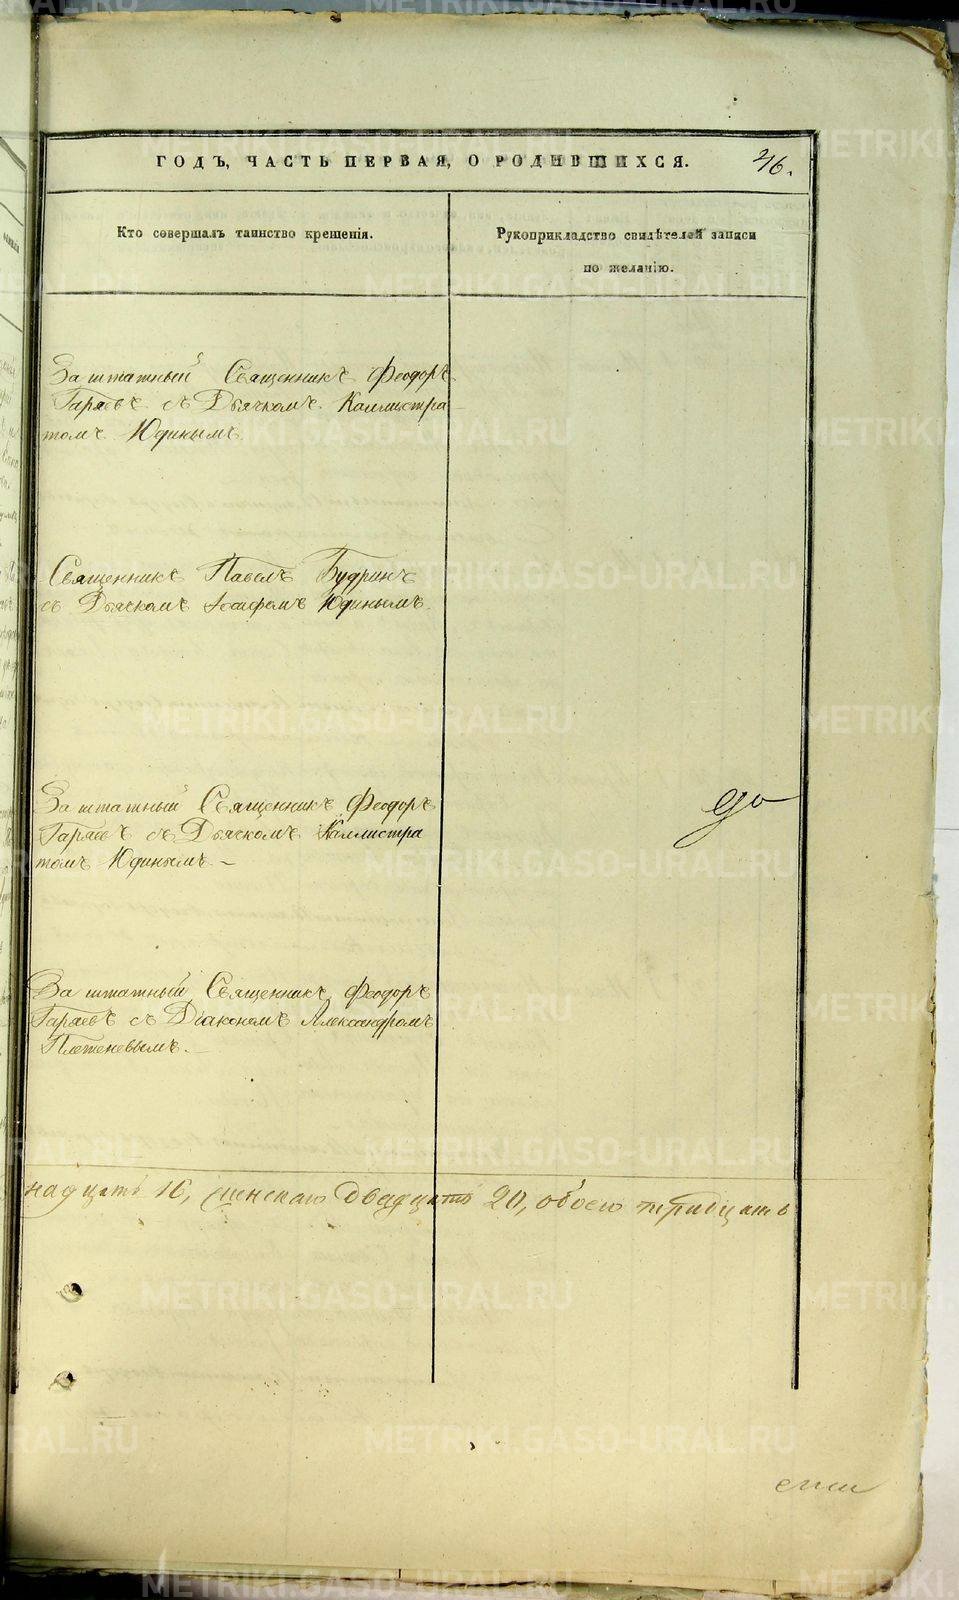 ГОДЪ, ЧАСТЬ ПЕРВАЯ, О РОДИВШИХСЯ.
Кто совершалъ таинство крещенія.
Рукоприкладство свидѣтелей записи
по желанію.
Заштатный Священникъ Феодоръ
Гаряевъ съ Дьячкомъ Каллистра
томъ Юдинымъ.
Священникъ Павелъ Будринъ
съ Дьячкомъ Іосифомъ Юдинымъ.
Заштатный Священникъ Феодоръ
Гаряевъ съ Дьячкомъ Каллистра
томъ Юдинымъ. –
Заштатный Священникъ Феодоръ
Гаряевъ съ Діакономъ Александромъ
Плетеневымъ. –
надцать 16, женскаго двадцать 20, обоего тридцать
METRIKI.GASO-URAL.RU